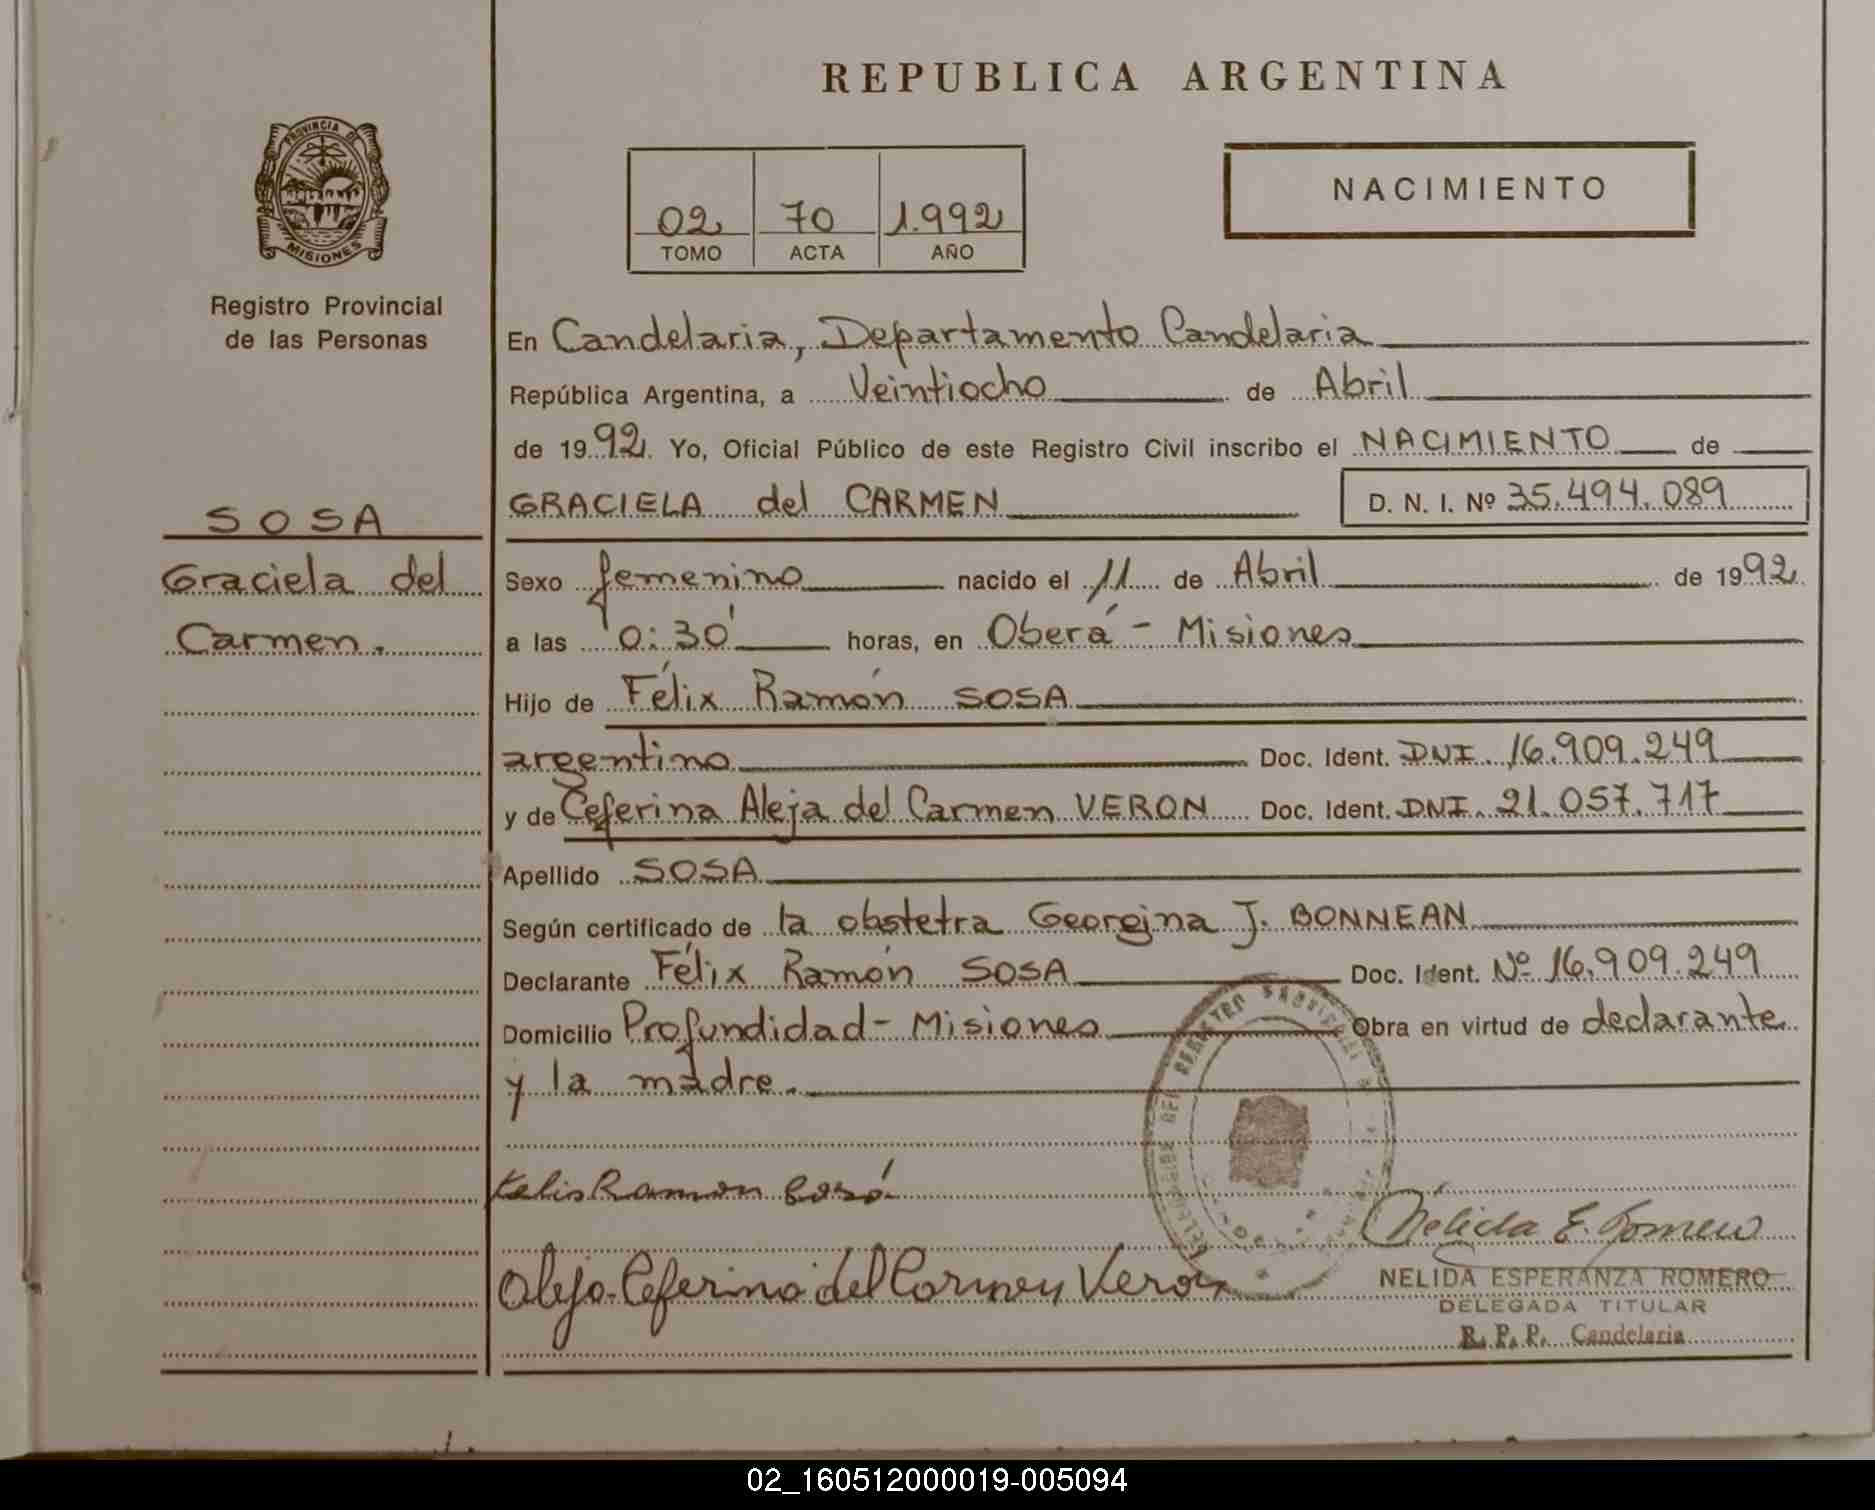 PROVINCIA DE
MISIONES
Registro Provincial
de las Personas
SOSA
Graciela del
Carmen.
REPUBLICA ARGENTINA
02 70 1.992
TOMO ACTA AÑO
NACIMIENTO
En Candelaria, Departamento Candelaria
República Argentina, a Veintiocho de Abril
de 1992. Yo, Oficial Público de este Registro Civil inscribo el NACIMIENTO de
GRACIELA del CARMEN D. N. I. Nº 35.494.089
Sexo femenino nacido el 11 de Abril de 1992
a las 0:30' horas, en Oberá - Misiones
Hijo de Félix Ramón SOSA
argentino Doc. Ident. DNI. 16.909.249
y de Ceferina Aleja del Carmen VERON Doc. Ident. DNI. 21.057.717
Apellido SOSA
Según certificado de la obstetra Georgina J. BONNEAN
Declarante Félix Ramón SOSA Doc. Ident. Nº 16.909.249
Domicilio Profundidad - Misiones Obra en virtud de declarante
y la madre.
Ramon
Nélida E. Romero
Aleja Ceferina del Carmen Verón
NELIDA ESPERANZA ROMERO
DELEGADA TITULAR
R. P. P. Candelaria
02_160512000019-005094